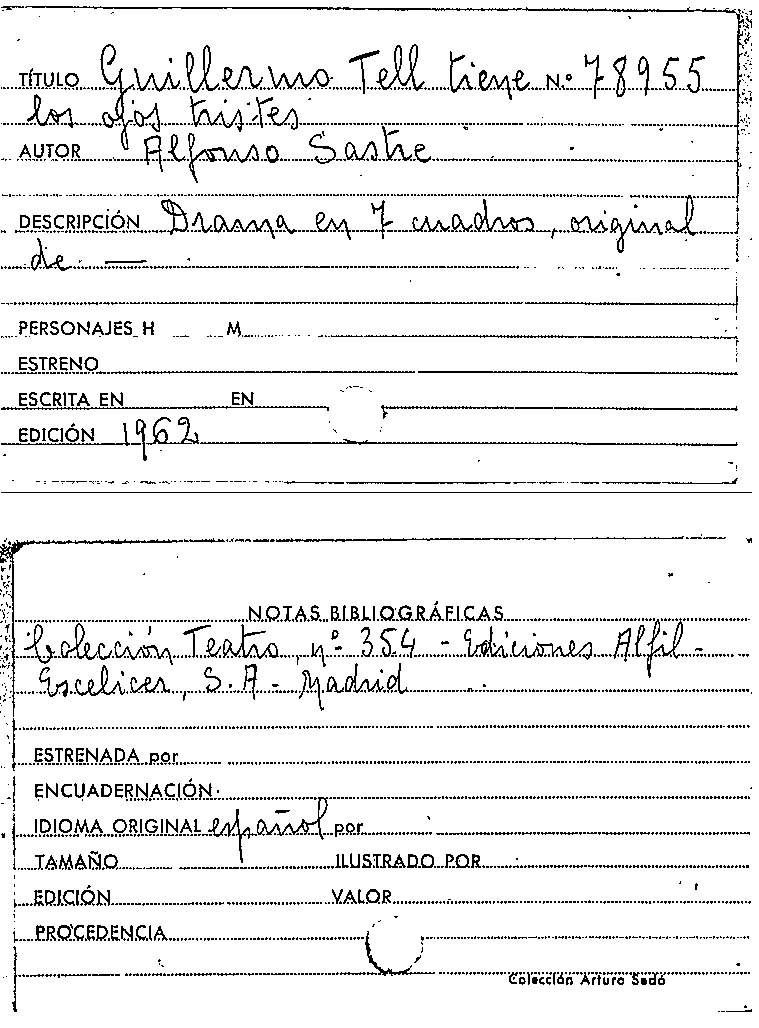 TÍTULO Guillermo Tell tiene N.º 78955
los ojos tristes
AUTOR Alfonso Sastre
DESCRIPCIÓN Drama en 7 cuadros, original
de —
PERSONAJES H M
ESTRENO
ESCRITA EN EN
EDICIÓN 1962
NOTAS BIBLIOGRÁFICAS
Colección Teatro, nº 354 - Ediciones Alfil -
Escelicer, S.A - Madrid
ESTRENADA por
ENCUADERNACIÓN
IDIOMA ORIGINAL español por
TAMAÑO ILUSTRADO POR
EDICIÓN VALOR
PROCEDENCIA
Colección Arturo Sedó